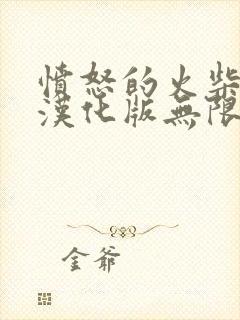 憤怒的火柴
漢化版無限
金爺